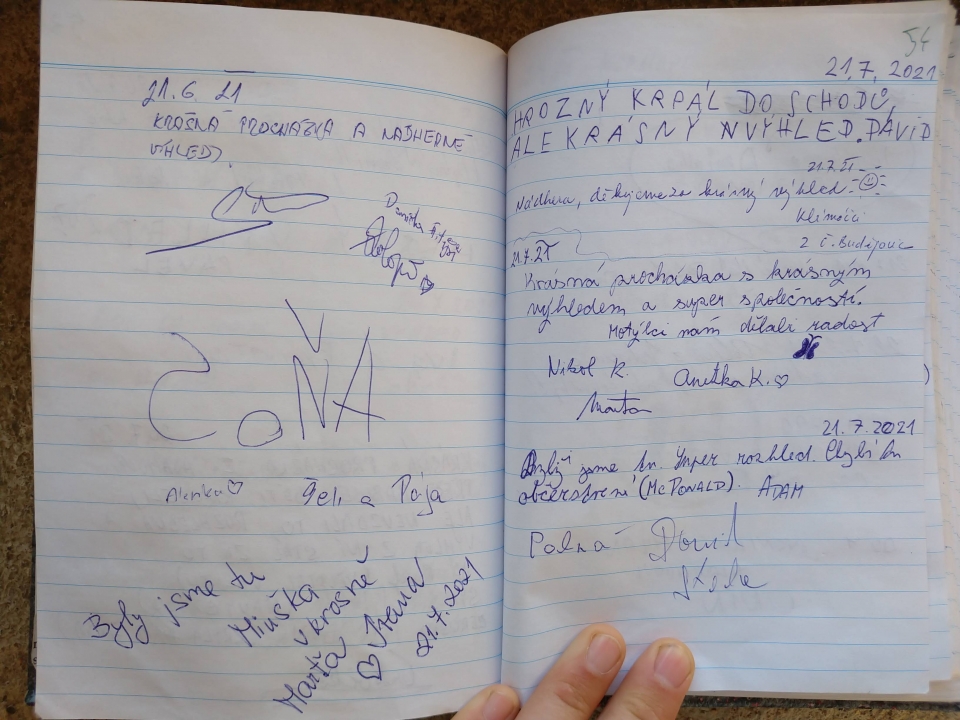 21.6. 21
KRÁSNÁ PROCHÁZKA A NÁDHERNÉ
VÝHLEDY.
ČOŇA
Alenka
Feli a Pája
Byly jsme tu
Miuška
v krásné
Marťa
21.7.2021
54
21.7.2021
HROZNÝ KRPÁL DO SCHODŮ,
ALE KRÁSNÝ VÝHLED. DAVID
21.7.21
Nádhera, děkujeme za krásný výhled
Klímovi
z Č. Budějovic
21.7.21
Krásná procházka s krásným
výhledem a super společností.
Motýlci nám dělali radost
Nikol K.
Anetka K.
Marta
21.7.2021
Byli jsme tu. Super rozhled. Chybí tu
občerstvení (McDONALD). ADAM
Polná David